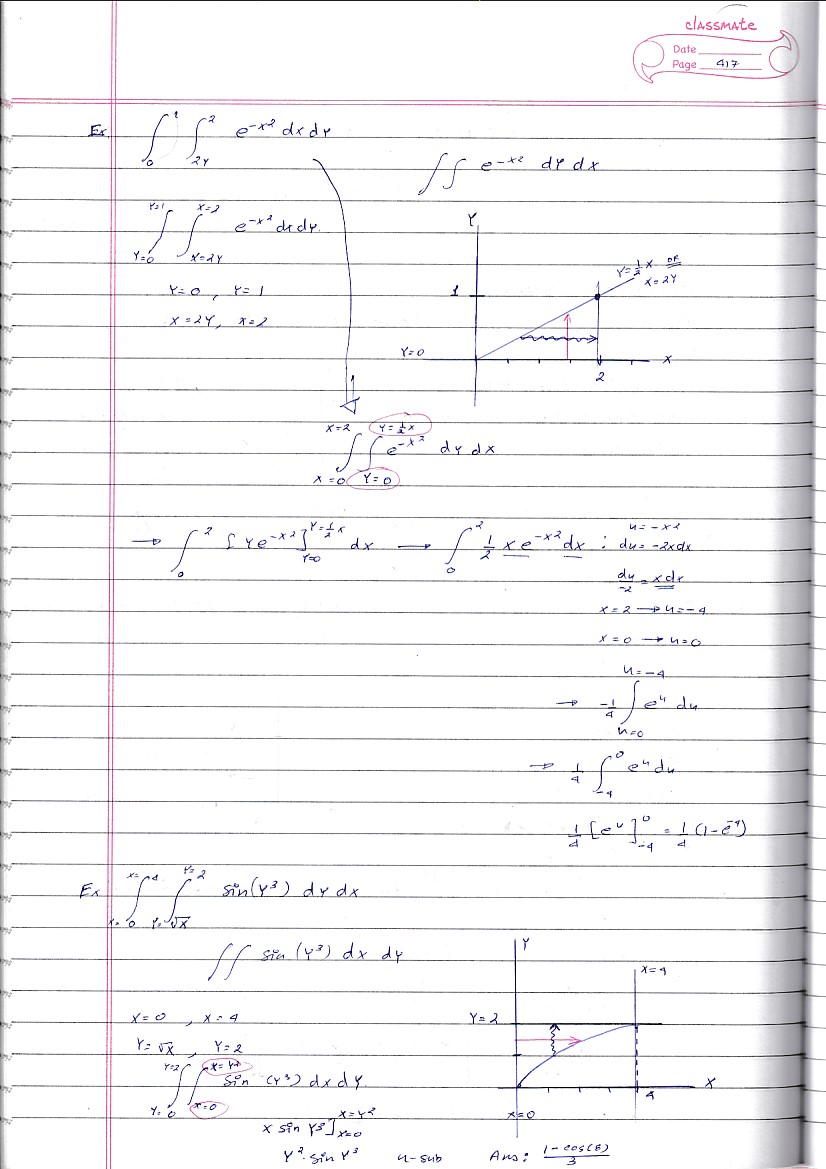 classmate
Date
Page 417
Ex ∫₀¹ ∫_{2Y}^{2} e^{-x²} dx dY
∫∫ e^{-x²} dY dx
∫_{Y=0}^{Y=1} ∫_{X=2Y}^{X=2} e^{-x²} dx dY.
Y=0 , Y=1
X=2Y, X=2
Y
Y=½X OR
X=2Y
1
Y=0
X
2
∫_{X=0}^{X=2} ∫_{Y=0}^{Y=½X} e^{-x²} dY dX
→ ∫₀² [Y e^{-x²}]_{Y=0}^{Y=½X} dx → ∫₀² ½ x e^{-x²} dx : u = -x²
du = -2xdx
du/-2 = xdx
x=2 → u=-4
x=0 → u=0
→ -1/4 ∫_{u=0}^{u=-4} e^u du
→ 1/4 ∫_{-4}^{0} e^u du
1/4 [e^u]_{-4}^{0} = 1/4 (1-e^{-4})
Ex ∫_{X=0}^{X=4} ∫_{Y=√X}^{Y=2} sin(Y³) dY dX
∫∫ sin (Y³) dX dY
Y
X=4
X=0 , X=4
Y=2
Y=√X , Y=2
∫_{Y=0}^{Y=2} ∫_{X=0}^{X=Y²} sin (Y³) dX dY
X
4
X=0
X sin Y³]_{X=0}^{X=Y²}
Y² · sin Y³ u-sub Ans: (1-cos(8))/3